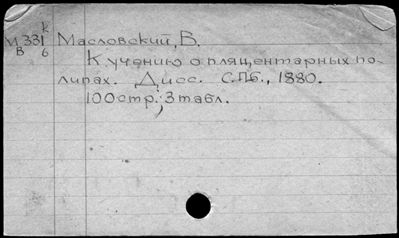 k
М 331 Масловский, В.
В 6
К учению о пляцентарных по-
липах. Дисс. С.П.Б., 1880.
100 стр.; 3 табл.